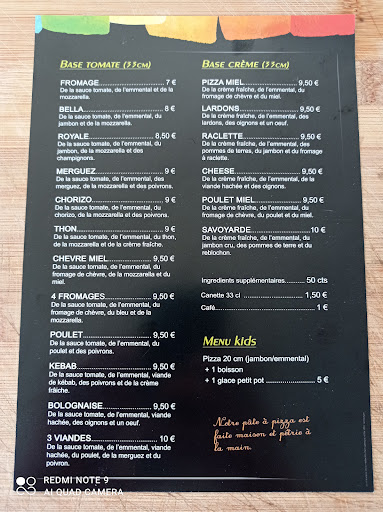 BASE TOMATE (33CM)
FROMAGE 7 €
De la sauce tomate, de l'emmental et de la
mozzarella.
BELLA 8 €
De la sauce tomate, de l'emmental, du
jambon et de la mozzarella.
ROYALE 8,50 €
De la sauce tomate, de l'emmental, du
jambon, de la mozzarella et des
champignons.
MERGUEZ 9 €
De la sauce tomate, de l'emmental, des
merguez, de la mozzarella et des poivrons.
CHORIZO 9 €
De la sauce tomate, de l'emmental, du
chorizo, de la mozzarella et des poivrons.
THON 9 €
De la sauce tomate, de l'emmental, du thon,
de la mozzarella et de la crème fraîche.
CHEVRE MIEL 9,50 €
De la sauce tomate, de l'emmental, du
fromage de chèvre, de la mozzarella et du
miel.
4 FROMAGES 9,50 €
De la sauce tomate, de l'emmental, du
fromage de chèvre, du bleu et de la
mozzarella.
POULET 9,50 €
De la sauce tomate, de l'emmental, du
poulet et des poivrons.
KEBAB 9,50 €
De la sauce tomate, de l'emmental, viande
de kébab, des poivrons et de la crème
fraîche.
BOLOGNAISE 9,50 €
De la sauce tomate, de l'emmental, viande
hachée, des oignons et un oeuf.
3 VIANDES 10 €
De la sauce tomate, de l'emmental, viande
hachée, du poulet, de la merguez et du
poivron.
BASE CRÈME (33CM)
PIZZA MIEL 9,50 €
De la crème fraîche, de l'emmental, du
fromage de chèvre et du miel.
LARDONS 9,50 €
De la crème fraîche, de l'emmental, des
lardons, des oignons et un oeuf.
RACLETTE 9,50 €
De la crème fraîche, de l'emmental, des
pommes de terres, du jambon et du fromage
à raclette.
CHEESE 9,50 €
De la crème fraîche, de l'emmental, de la
viande hachée et des oignons.
POULET MIEL 9,50 €
De la crème fraîche, de l'emmental, du
fromage de chèvre, du poulet et du miel.
SAVOYARDE 10 €
De la crème fraîche, de l'emmental, du
jambon cru, des pommes de terre et du
reblochon.
Ingredients supplémentaires 50 cts
Canette 33 cl 1,50 €
Café 1 €
MENU KIDS
Pizza 20 cm (jambon/emmental)
+ 1 boisson
+ 1 glace petit pot 5 €
Notre pâte à pizza est
faite maison et pétrie à
la main.
REDMI NOTE 9
AI QUAD CAMERA